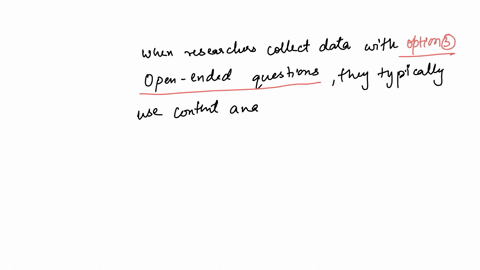 when researchers collect data with option ③
Open-ended questions, they typically
use content ana